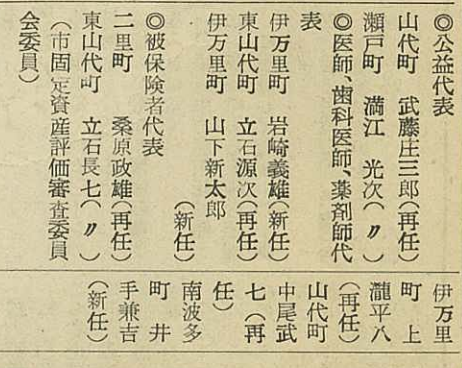 ◎公益代表
山代町　武藤庄三郎(再任)
瀬戸町　満江　光次(〃)
◎医師、歯科医師、薬剤師代
表
伊万里町　岩崎義雄(新任)
東山代町　立石源次(再任)
伊万里町　山下新太郎
(新任)
◎被保険者代表
二里町　桑原政雄(再任)
東山代町　立石長七(〃)
(市固定資産評価審査委員
会委員)
伊万里
町　上
瀧平八
(再任)
山代町
中尾武
七(再
任)
南波多
町　井
手兼吉
(新任)